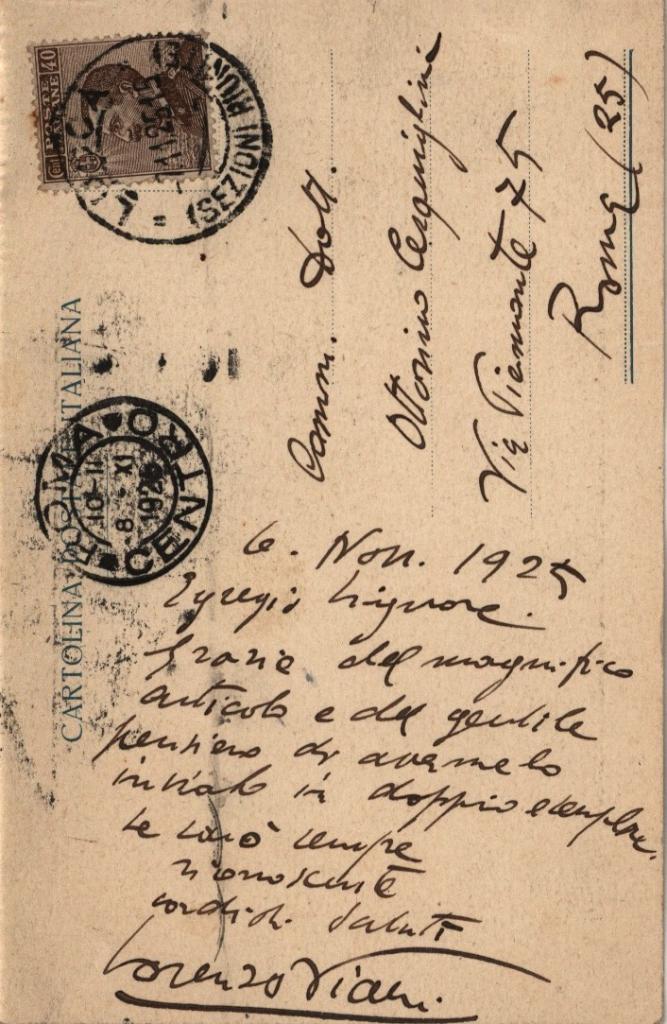 POSTE ITALIANE
CENT 40
LUCCA
(SEZIONI RIUNITE)
CARTOLINA POSTALE ITALIANA
ROMA CENTRO
10-11
8 XI
Comm. Dott.
Ottorino
Via Piemonte 75
Roma (25)
6. Nov. 1925
Egregio Signore.
Grazie del magnifico
articolo e del gentile
pensiero di avermelo
inviato in doppio esemplare.
Le sarò sempre
riconoscente
cordiali saluti
Lorenzo Viani.